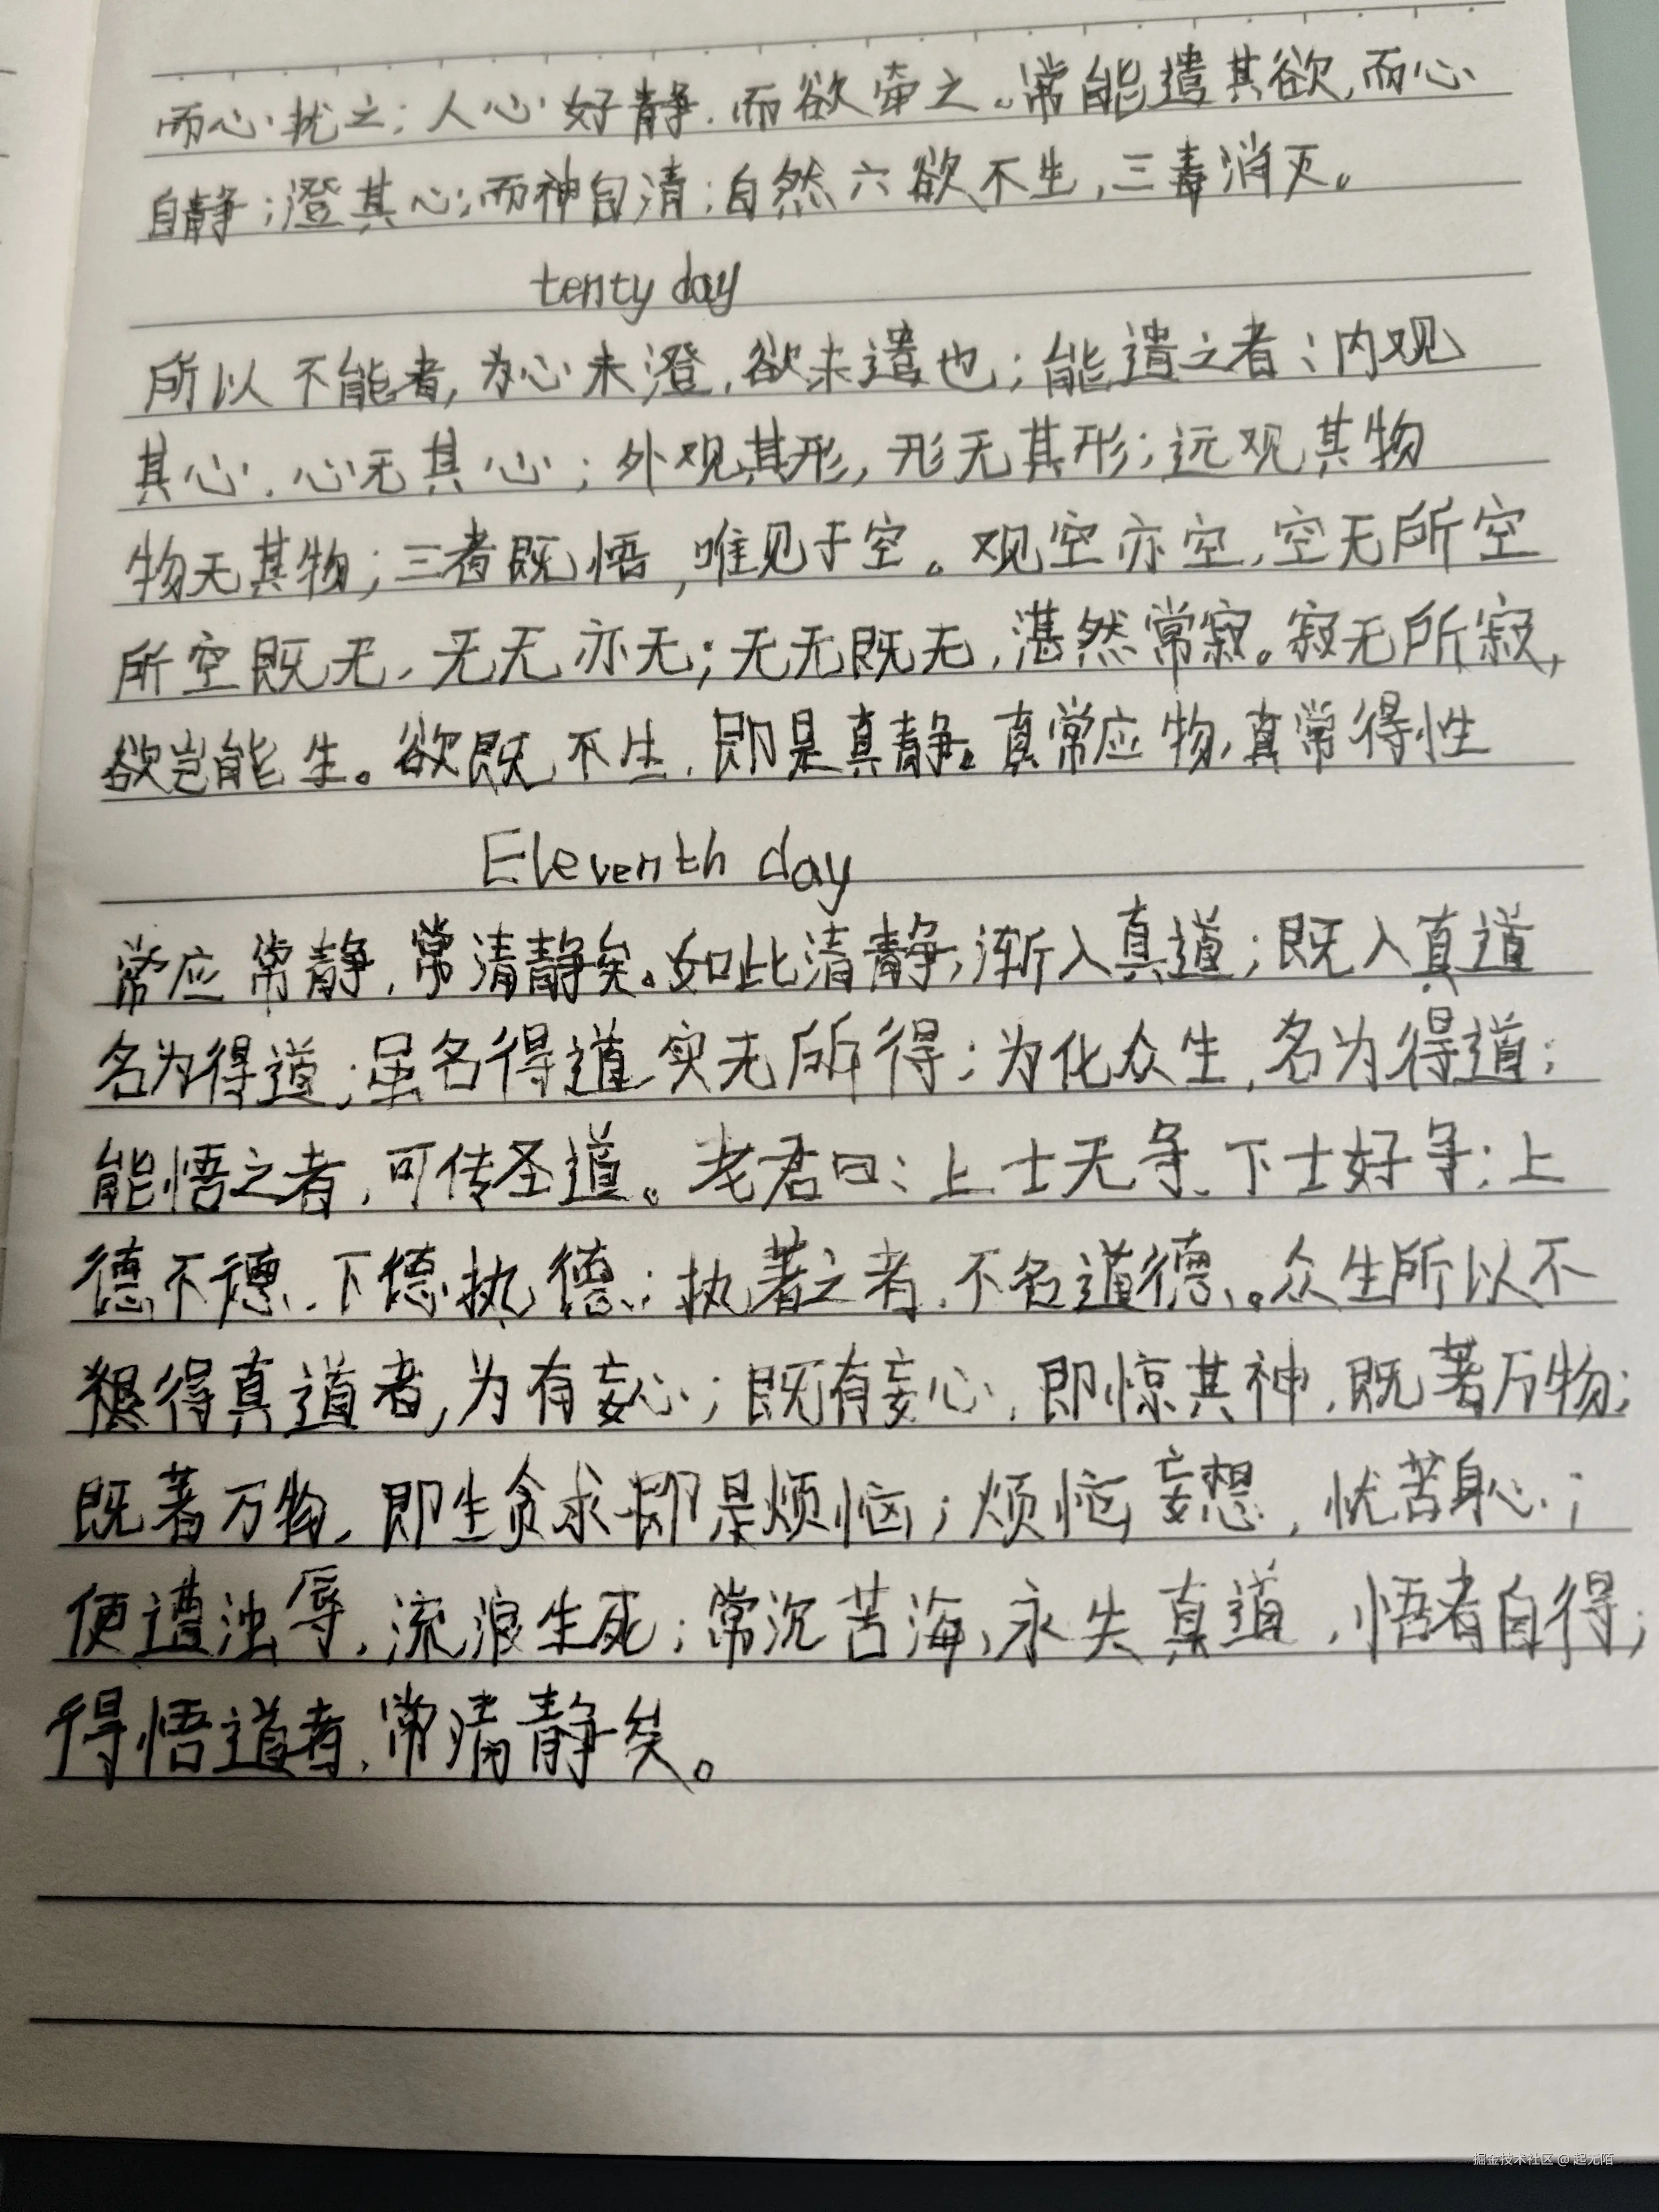 而心扰之;人心好静,而欲牵之。常能遣其欲,而心
自静;澄其心;而神自清;自然六欲不生,三毒消灭。
tenty day
所以不能者,为心未澄,欲未遣也;能遣之者:内观
其心,心无其心;外观其形,形无其形;远观其物
物无其物;三者既悟,唯见于空。观空亦空,空无所空
所空既无,无无亦无;无无既无,湛然常寂。寂无所寂,
欲岂能生。欲既不生,即是真静。真常应物,真常得性
Eleventh day
常应常静,常清静矣。如此清静,渐入真道;既入真道
名为得道;虽名得道,实无所得;为化众生,名为得道;
能悟之者,可传圣道。老君曰:上士无争,下士好争;上
德不德,下德执德;执著之者,不名道德。众生所以不
得真道者,为有妄心;既有妄心,即惊其神,既著万物;
既著万物,即生贪求,即是烦恼;烦恼妄想,忧苦身心;
便遭浊辱,流浪生死;常沉苦海,永失真道,悟者自得;
得悟道者,常清静矣。
掘金技术社区 @ 起无陌